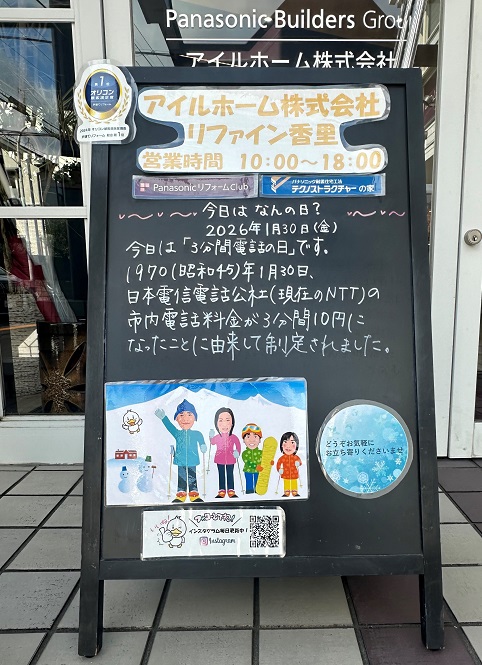 Panasonic Builders Group
アイルホーム株式会社
第1位
オリコン
アイルホーム株式会社
リファイン香里
営業時間 10:00〜18:00
Panasonic リフォームClub
パナソニック耐震住宅工法
テクノストラクチャーの家
今日は なんの日?
2026年1月30日(金)
今日は「3分間電話の日」です。
1970(昭和45)年1月30日、
日本電信電話公社(現在のNTT)の
市内電話料金が3分間10円に
なったことに由来して制定されました。
どうぞお気軽に
お立ち寄りくださいませ
インスタグラム毎日更新中!
Instagram